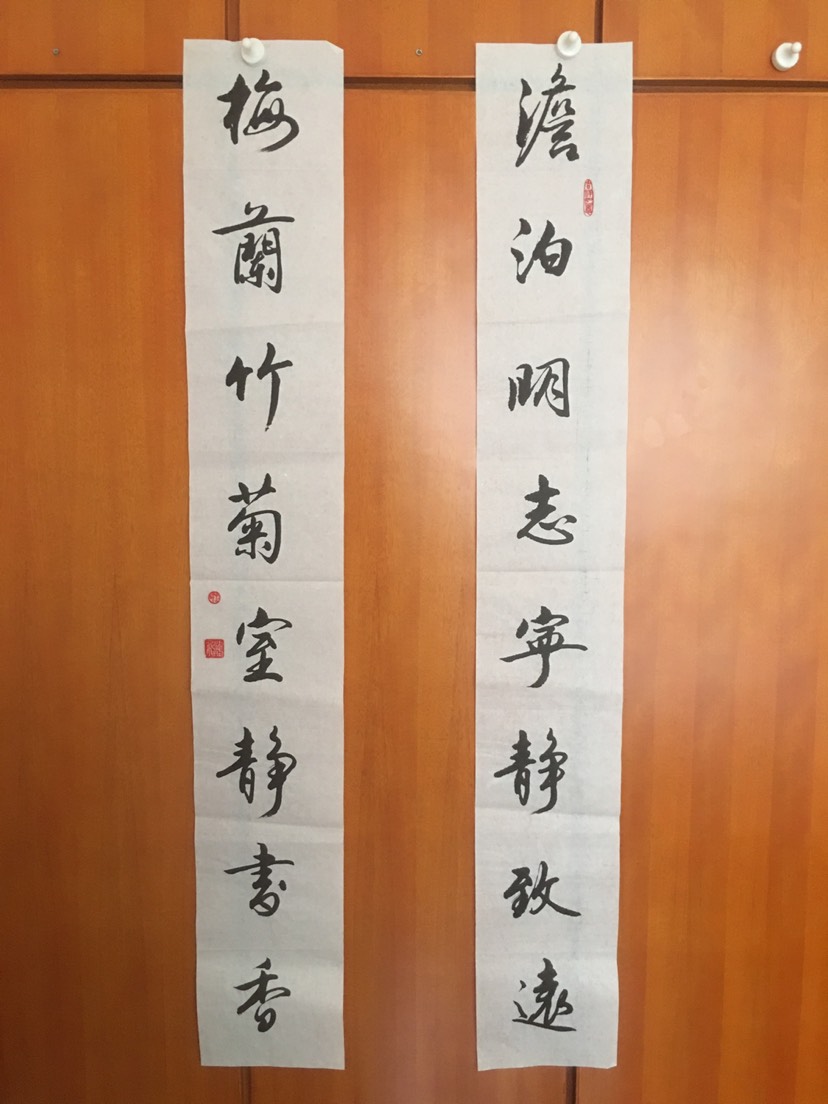 澹泊明志寧静致遠
梅蘭竹菊室静書香